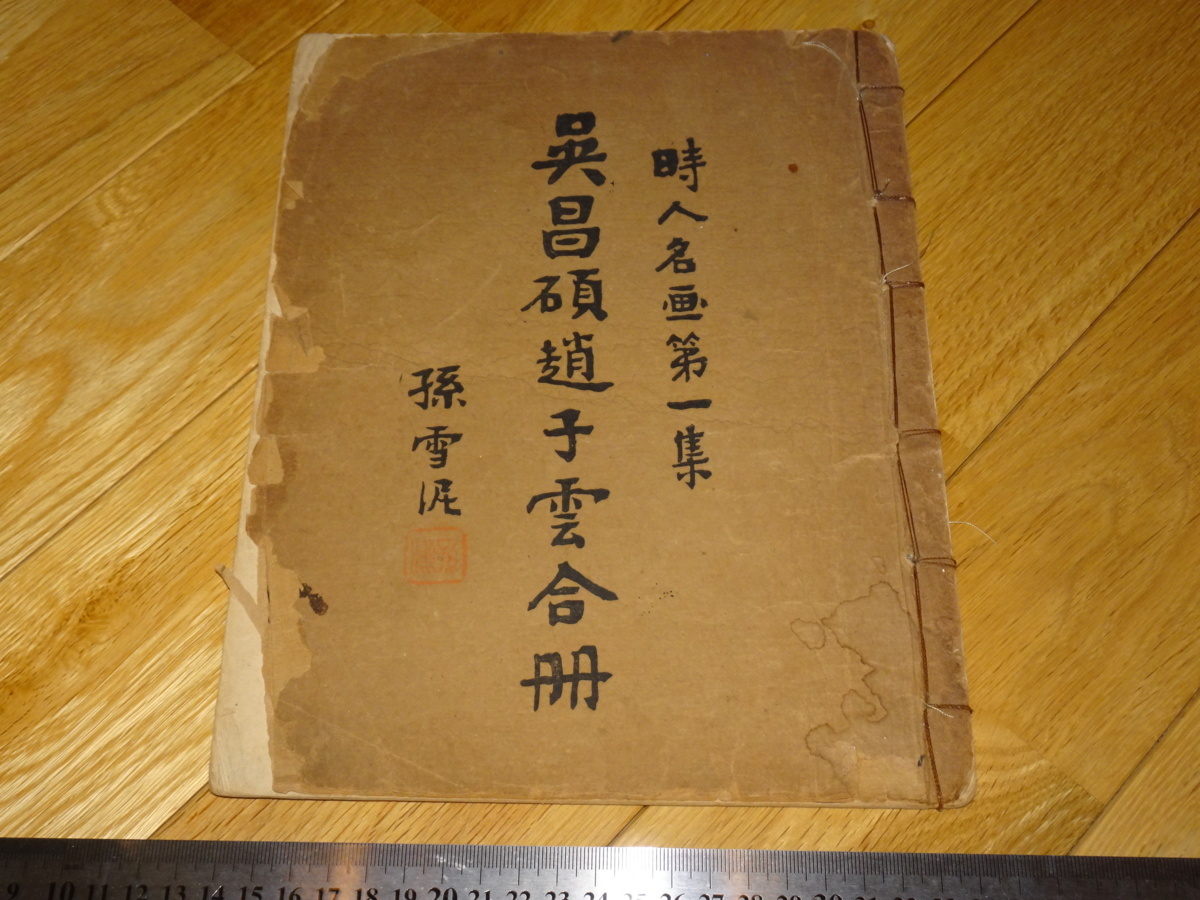 時人名画第一集
吳昌碩趙子雲合册
孫雪泥
9 10 11 12 13 14 15 16 17 18 19 20 21 22 23 24 25 26 27 28 29 30